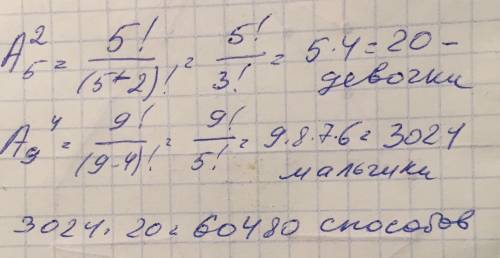 A₅² = 5! / (5-2)! = 5! / 3! = 5·4 = 20 -
девочки
A₉⁴ = 9! / (9-4)! = 9! / 5! = 9·8·7·6 = 3024
мальчики
3024 · 20 = 60480 способов